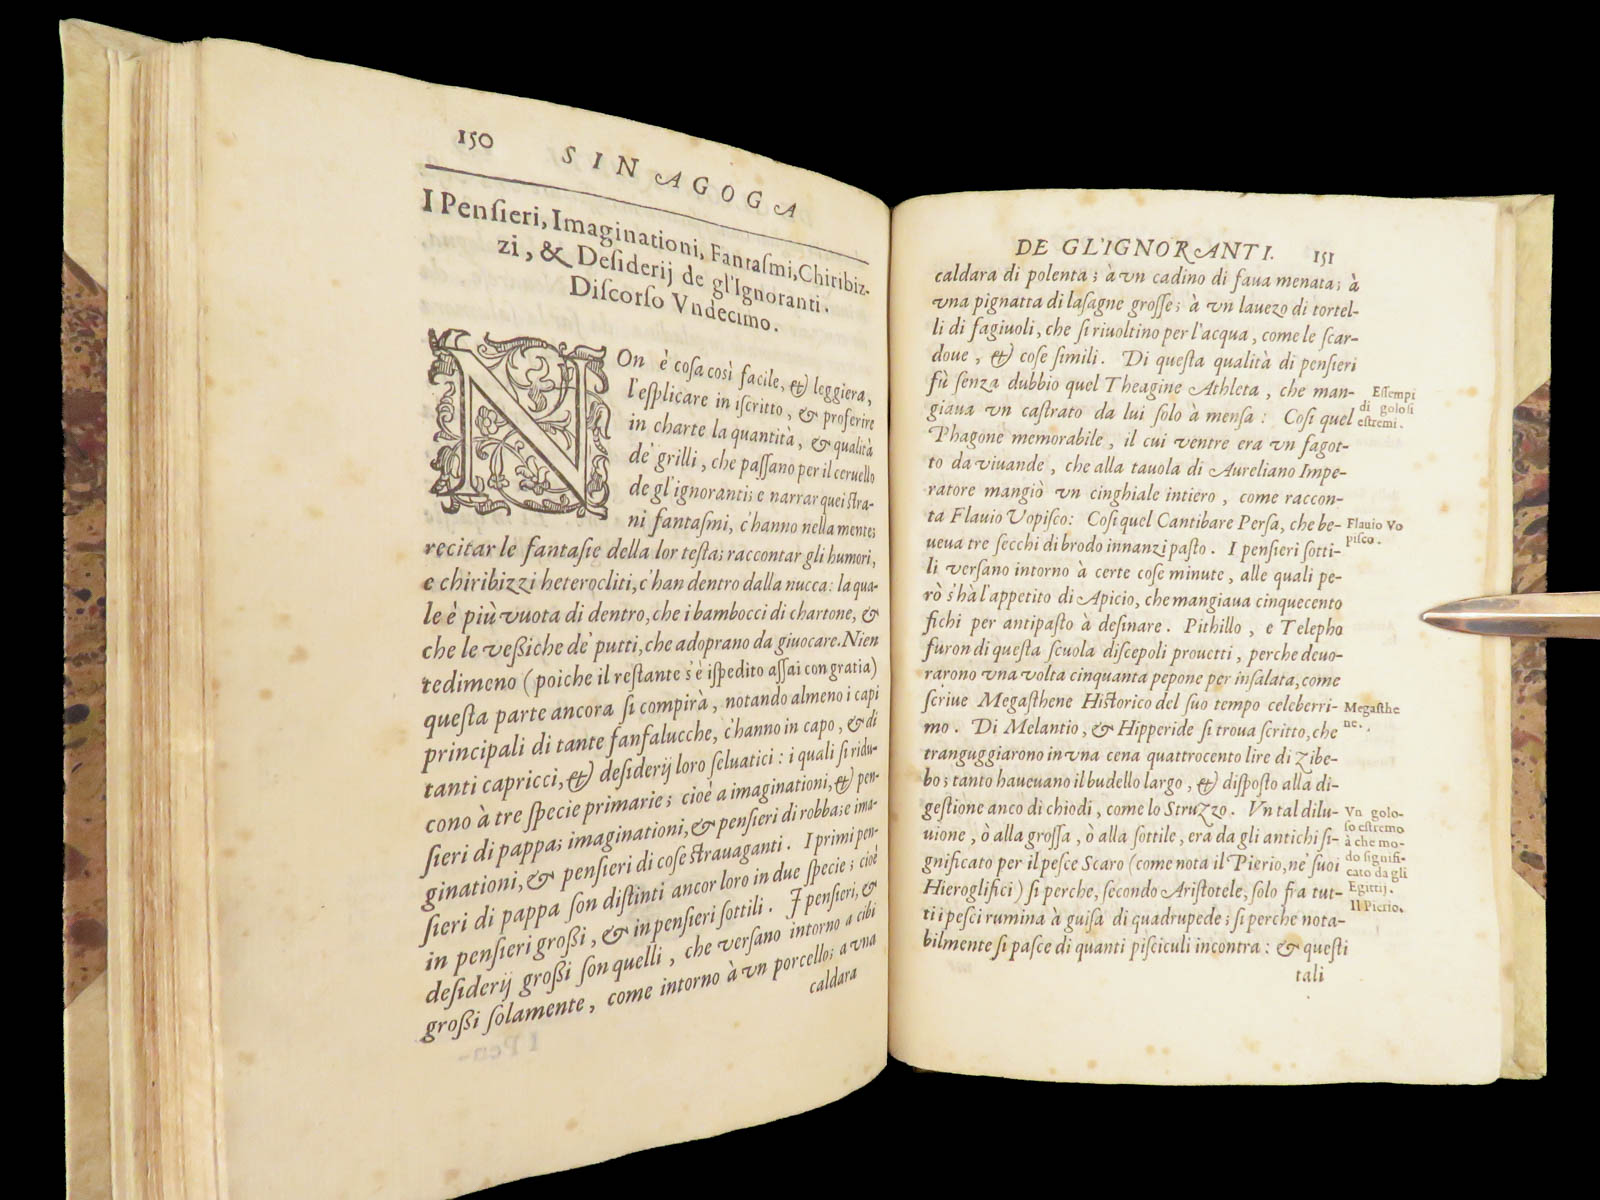 150 SINAGOGA
I Penſieri, Imaginationi, Fantaſmi, Chiribiz-
zi, & Deſiderij de gl'Ignoranti.
Diſcorſo Vndecimo.
NOn è coſa così facile, & leggiera,
l'eſplicare in iſcritto, & proferire
in charte la quantità, & qualità
de' grilli, che paſſano per il ceruello
de gl'ignoranti; e narrar quei ſtra-
ni fantaſmi, c'hanno nella mente;
recitar le fantaſie della lor teſta; raccontar gli humori,
e chiribizzi heterocliti, c'han dentro dalla nucca: la qua-
le è più vuota di dentro, che i bambocci di chartone, &
che le veſſiche de' putti, che adoprano da giuocare. Nien
tedimeno (poiche il reſtante s'è iſpedito aſſai con gratia)
queſta parte ancora ſi compirà, notando almeno i capi
principali di tante fanfalucche, c'hanno in capo, & di
tanti capricci, & deſiderij loro ſeluatici: i quali ſi ridu-
cono à tre ſpecie primarie; cioè a imaginationi, & pen-
ſieri di pappa; imaginationi, & penſieri di robba; e ima-
ginationi, & penſieri di coſe ſtrauaganti. I primi pen-
ſieri di pappa ſon diſtinti ancor loro in due ſpecie; cioè
in penſieri groſſi, & in penſieri ſottili. I penſieri, &
deſiderij groſſi ſon quelli, che verſano intorno a cibi
groſſi ſolamente, come intorno à vn porcello; a vna
caldara
DE GL'IGNORANTI. 151
caldara di polenta; à vn cadino di faua menata; à
vna pignatta di laſagne groſſe; à vn lauezo di tortel-
li di fagiuoli, che ſi riuoltino per l'acqua, come le ſcar-
doue, & coſe ſimili. Di queſta qualità di penſieri
fù ſenza dubbio quel Theagine Athleta, che man-
giaua vn caſtrato da lui ſolo à menſa: Coſi quel
Phagone memorabile, il cui ventre era vn fagot-
to da viuande, che alla tauola di Aureliano Impe-
ratore mangiò vn cinghiale intiero, come raccon-
ta Flauio Vopiſco: Coſi quel Cantibare Perſa, che be-
ueua tre ſecchi di brodo innanzi paſto. I penſieri ſotti-
li verſano intorno à certe coſe minute, alle quali pe-
rò s'hà l'appetito di Apicio, che mangiaua cinquecento
fichi per antipaſto à deſinare. Pithillo, e Telepho
furon di queſta ſcuola diſcepoli prouetti, perche deuo-
rarono vna volta cinquanta pepone per inſalata, come
ſcriue Megaſthene Hiſtorico del ſuo tempo celeberri-
mo. Di Melantio, & Hipperide ſi troua ſcritto, che
tranguggiarono in vna cena quattrocento lire di zibe-
bo; tanto haueuano il budello largo, & diſpoſto alla di-
geſtione anco di chiodi, come lo Struzzo. Vn tal dilu-
uione, ò alla groſſa, ò alla ſottile, era da gli antichi ſi-
gnificato per il peſce Scaro (come nota il Pierio, ne' ſuoi
Hieroglifici) ſi perche, ſecondo Ariſtotele, ſolo fra tut-
ti i peſci rumina à guiſa di quadrupede; ſi perche nota-
bilmente ſi paſce di quanti piſciculi incontra: & queſti
tali
Eſſempi
di goloſi
eſtremi.
Flauio Vo
piſco.
Megaſthe
ne.
Vn golo-
ſo eſtremo
à che mo-
do ſignifi-
cato da gli
Egittij.
Il Pierio.